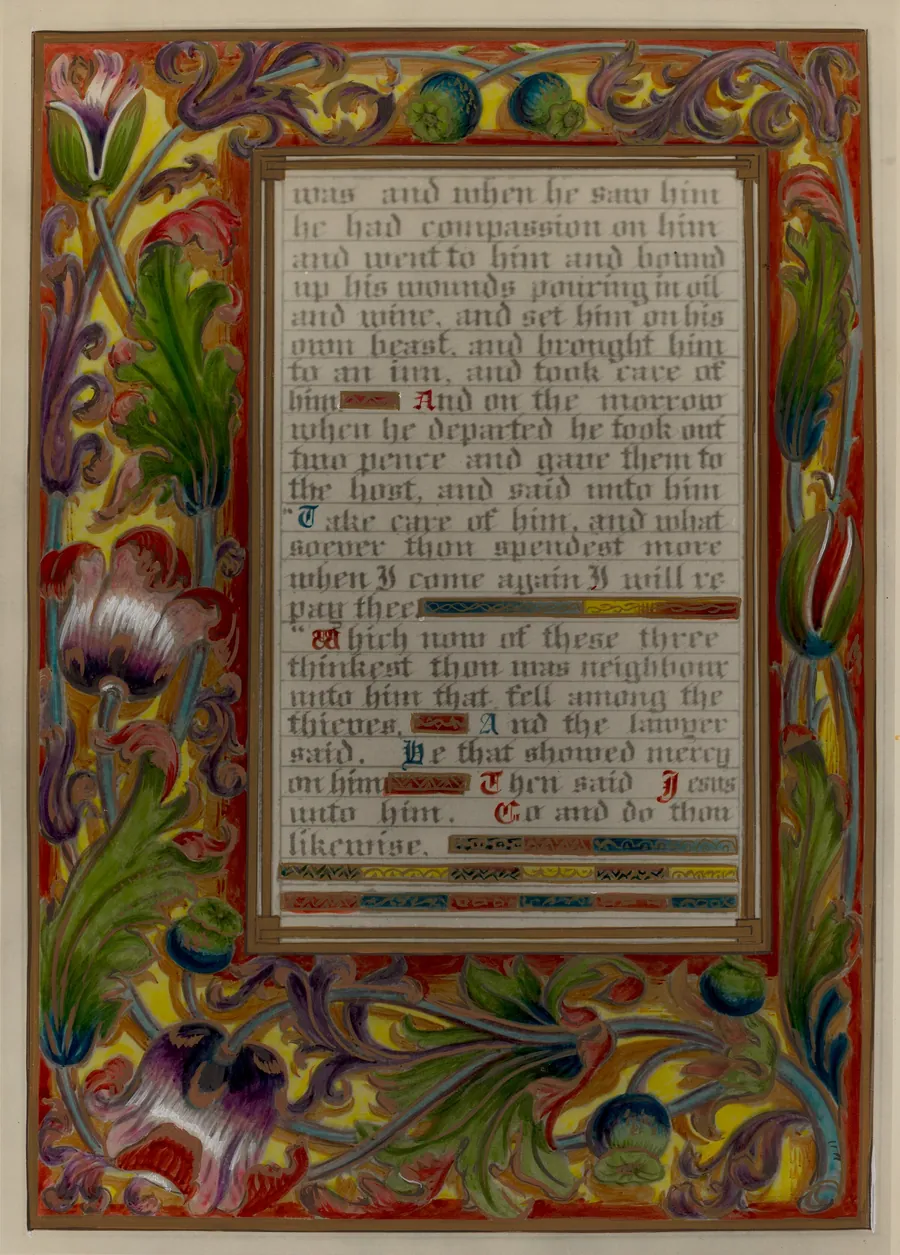 was and when he saw him
he had compassion on him
and went to him and bound
up his wounds pouring in oil
and wine, and set him on his
own beast, and brought him
to an inn, and took care of
him And on the morrow
when he departed he took out
two pence and gave them to
the host, and said unto him
"Take care of him, and what
soever thou spendest more
when I come again I will re
pay thee
"Which now of these three
thinkest thou was neighbour
unto him that fell among the
thieves, And the lawyer
said. He that showed mercy
on him Then said Jesus
unto him. Go and do thou
likewise.